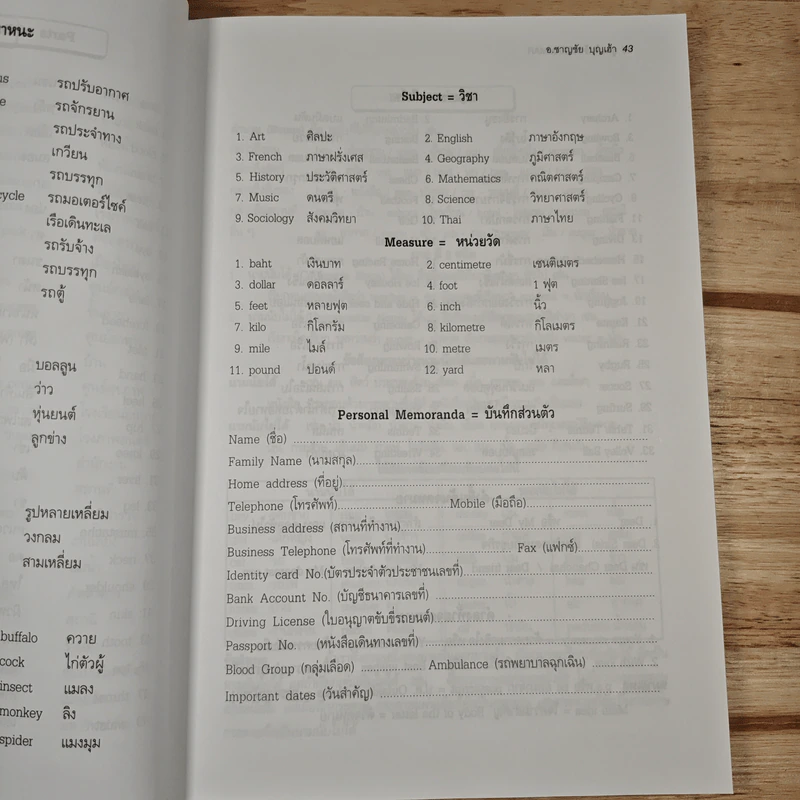 าหนะ
us รถปรับอากาศ
e รถจักรยาน
รถประจำทาง
เกวียน
รถบรรทุก
cycle รถมอเตอร์ไซค์
เรือเดินทะเล
รถรับจ้าง
รถบรรทุก
รถตู้
บอลลูน
ว่าว
หุ่นยนต์
ลูกข่าง
รูปหลายเหลี่ยม
วงกลม
สามเหลี่ยม
buffalo ควาย
cock ไก่ตัวผู้
insect แมลง
monkey ลิง
spider แมงมุม
อ.ชาญชัย บุญเฮ้า 43
Subject = วิชา
1. Art ศิลปะ 2. English ภาษาอังกฤษ
3. French ภาษาฝรั่งเศส 4. Geography ภูมิศาสตร์
5. History ประวัติศาสตร์ 6. Mathematics คณิตศาสตร์
7. Music ดนตรี 8. Science วิทยาศาสตร์
9. Sociology สังคมวิทยา 10. Thai ภาษาไทย
Measure = หน่วยวัด
1. baht เงินบาท 2. centimetre เซนติเมตร
3. dollar ดอลลาร์ 4. foot 1 ฟุต
5. feet หลายฟุต 6. inch นิ้ว
7. kilo กิโลกรัม 8. kilometre กิโลเมตร
9. mile ไมล์ 10. metre เมตร
11. pound ปอนด์ 12. yard หลา
Personal Memoranda = บันทึกส่วนตัว
Name (ชื่อ)
Family Name (นามสกุล)
Home address (ที่อยู่)
Telephone (โทรศัพท์) Mobile (มือถือ)
Business address (สถานที่ทำงาน)
Business Telephone (โทรศัพท์ที่ทำงาน) Fax (แฟกซ์)
Identity card No.(บัตรประจำตัวประชาชนเลขที่)
Bank Account No. (บัญชีธนาคารเลขที่)
Driving License (ใบอนุญาตขับขี่รถยนต์)
Passport No. (หนังสือเดินทางเลขที่)
Blood Group (กลุ่มเลือด) Ambulance (รถพยาบาลฉุกเฉิน)
Important dates (วันสำคัญ)